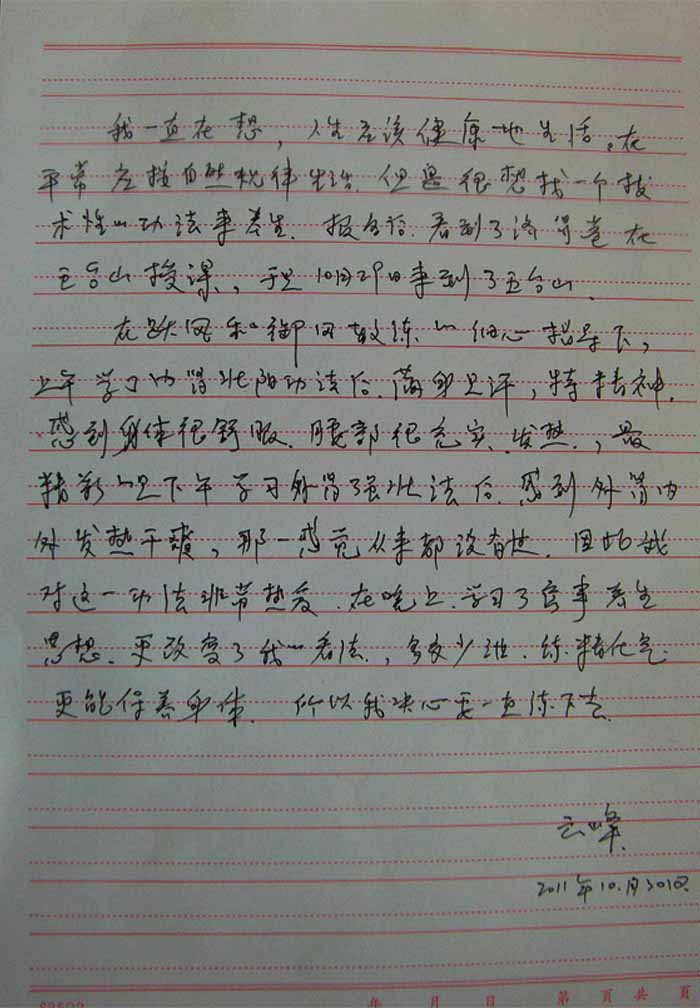 我一直在想，人生应该健康地生活。在
平常应按自然规律生活。但是很想找一个技
术性的功法来养生。报名后.看到了 在
五台山授课，于是10月29日来到了五台山.
在跃风和御风教练的细心指导下，
上午学习内肾壮阳功法后.满身是汗，特精神.
感到身体很舒服.腰部很充实.发热.，最
精彩的是下午学习外肾强壮法后.感到外肾内
外发热干爽，那一感觉从来都没有过.因此我
对这一功法 热爱.在晚上.学习了房事养生
思想.更改变了我的看法.， 少 .练精化气.
更能保养身体.所以我决心要一直练下去.
云峰.
2011年10.月30日.
年 月 日 第 頁 共 頁